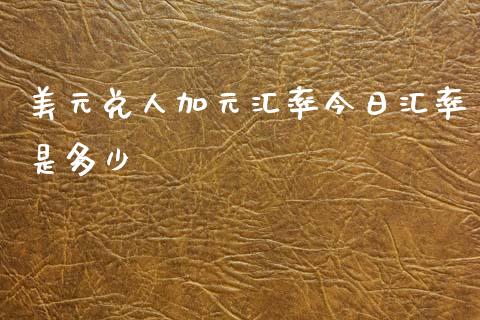 美元兑人加元汇率今日汇率
是多少